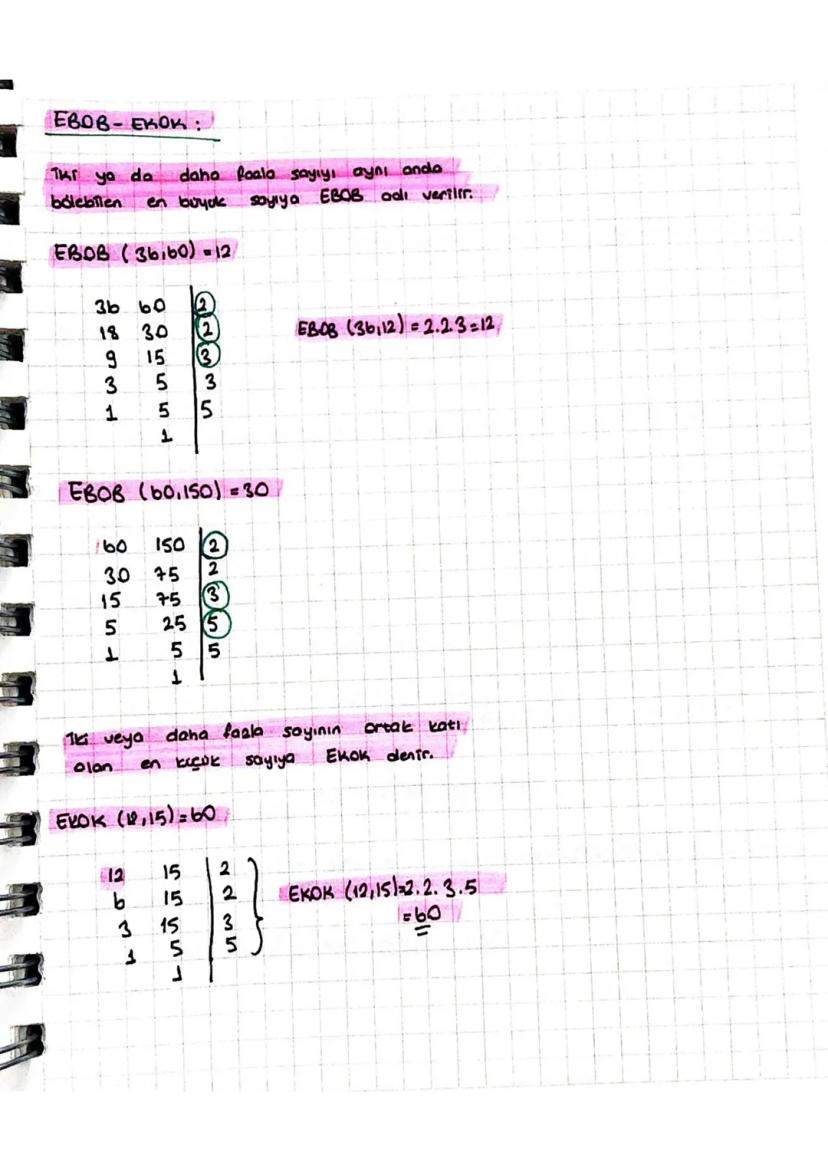 EBOB - EKOK :
İki ya da daha fazla sayıyı aynı anda
bölebilen en büyük sayıya EBOB adı verilir.
EBOB (36,60) = 12
36 60 | 2
18 30 | 2
9 15 | 3
3 5 | 3
1 5 | 5
1
EBOB (36,12) = 2.2.3=12
EBOB (60,150) = 30
60 150 | 2
30 75 | 2
15 75 | 3
5 25 | 5
1 5 | 5
1
İki veya daha fazla sayının ortak katı
olan en küçük sayıya EKOK denir.
EKOK (12,15) = 60
12 15 | 2
6 15 | 2
3 15 | 3
1 5 | 5
1
EKOK (12,15)=2.2.3.5
=60